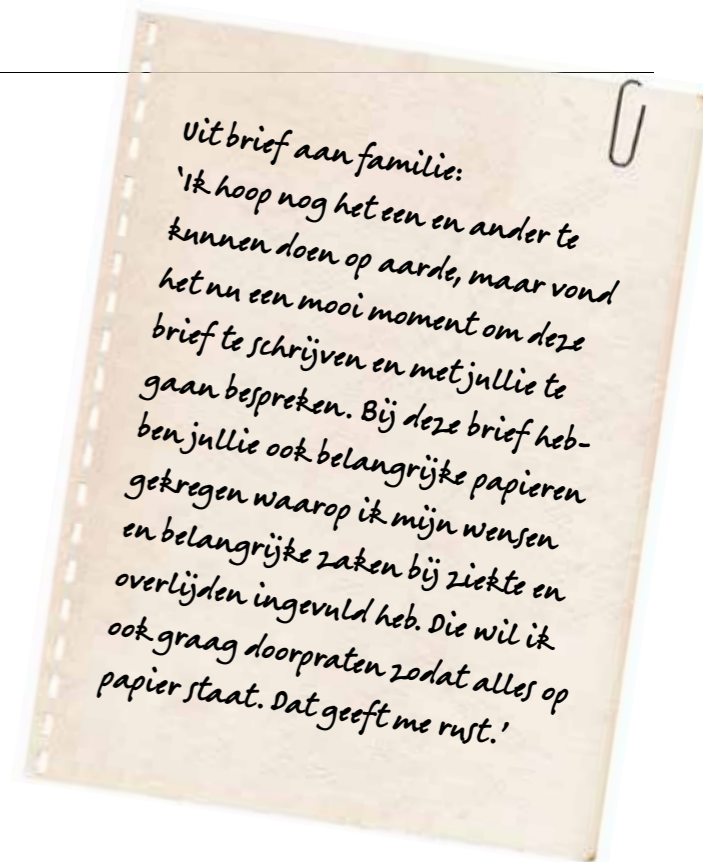 Uit brief aan familie:
'Ik hoop nog het een en ander te
kunnen doen op aarde, maar vond
het nu een mooi moment om deze
brief te schrijven en met jullie te
gaan bespreken. Bij deze brief heb-
ben jullie ook belangrijke papieren
gekregen waarop ik mijn wensen
en belangrijke zaken bij ziekte en
overlijden ingevuld heb. Die wil ik
ook graag doorpraten zodat alles op
papier staat. Dat geeft me rust.'